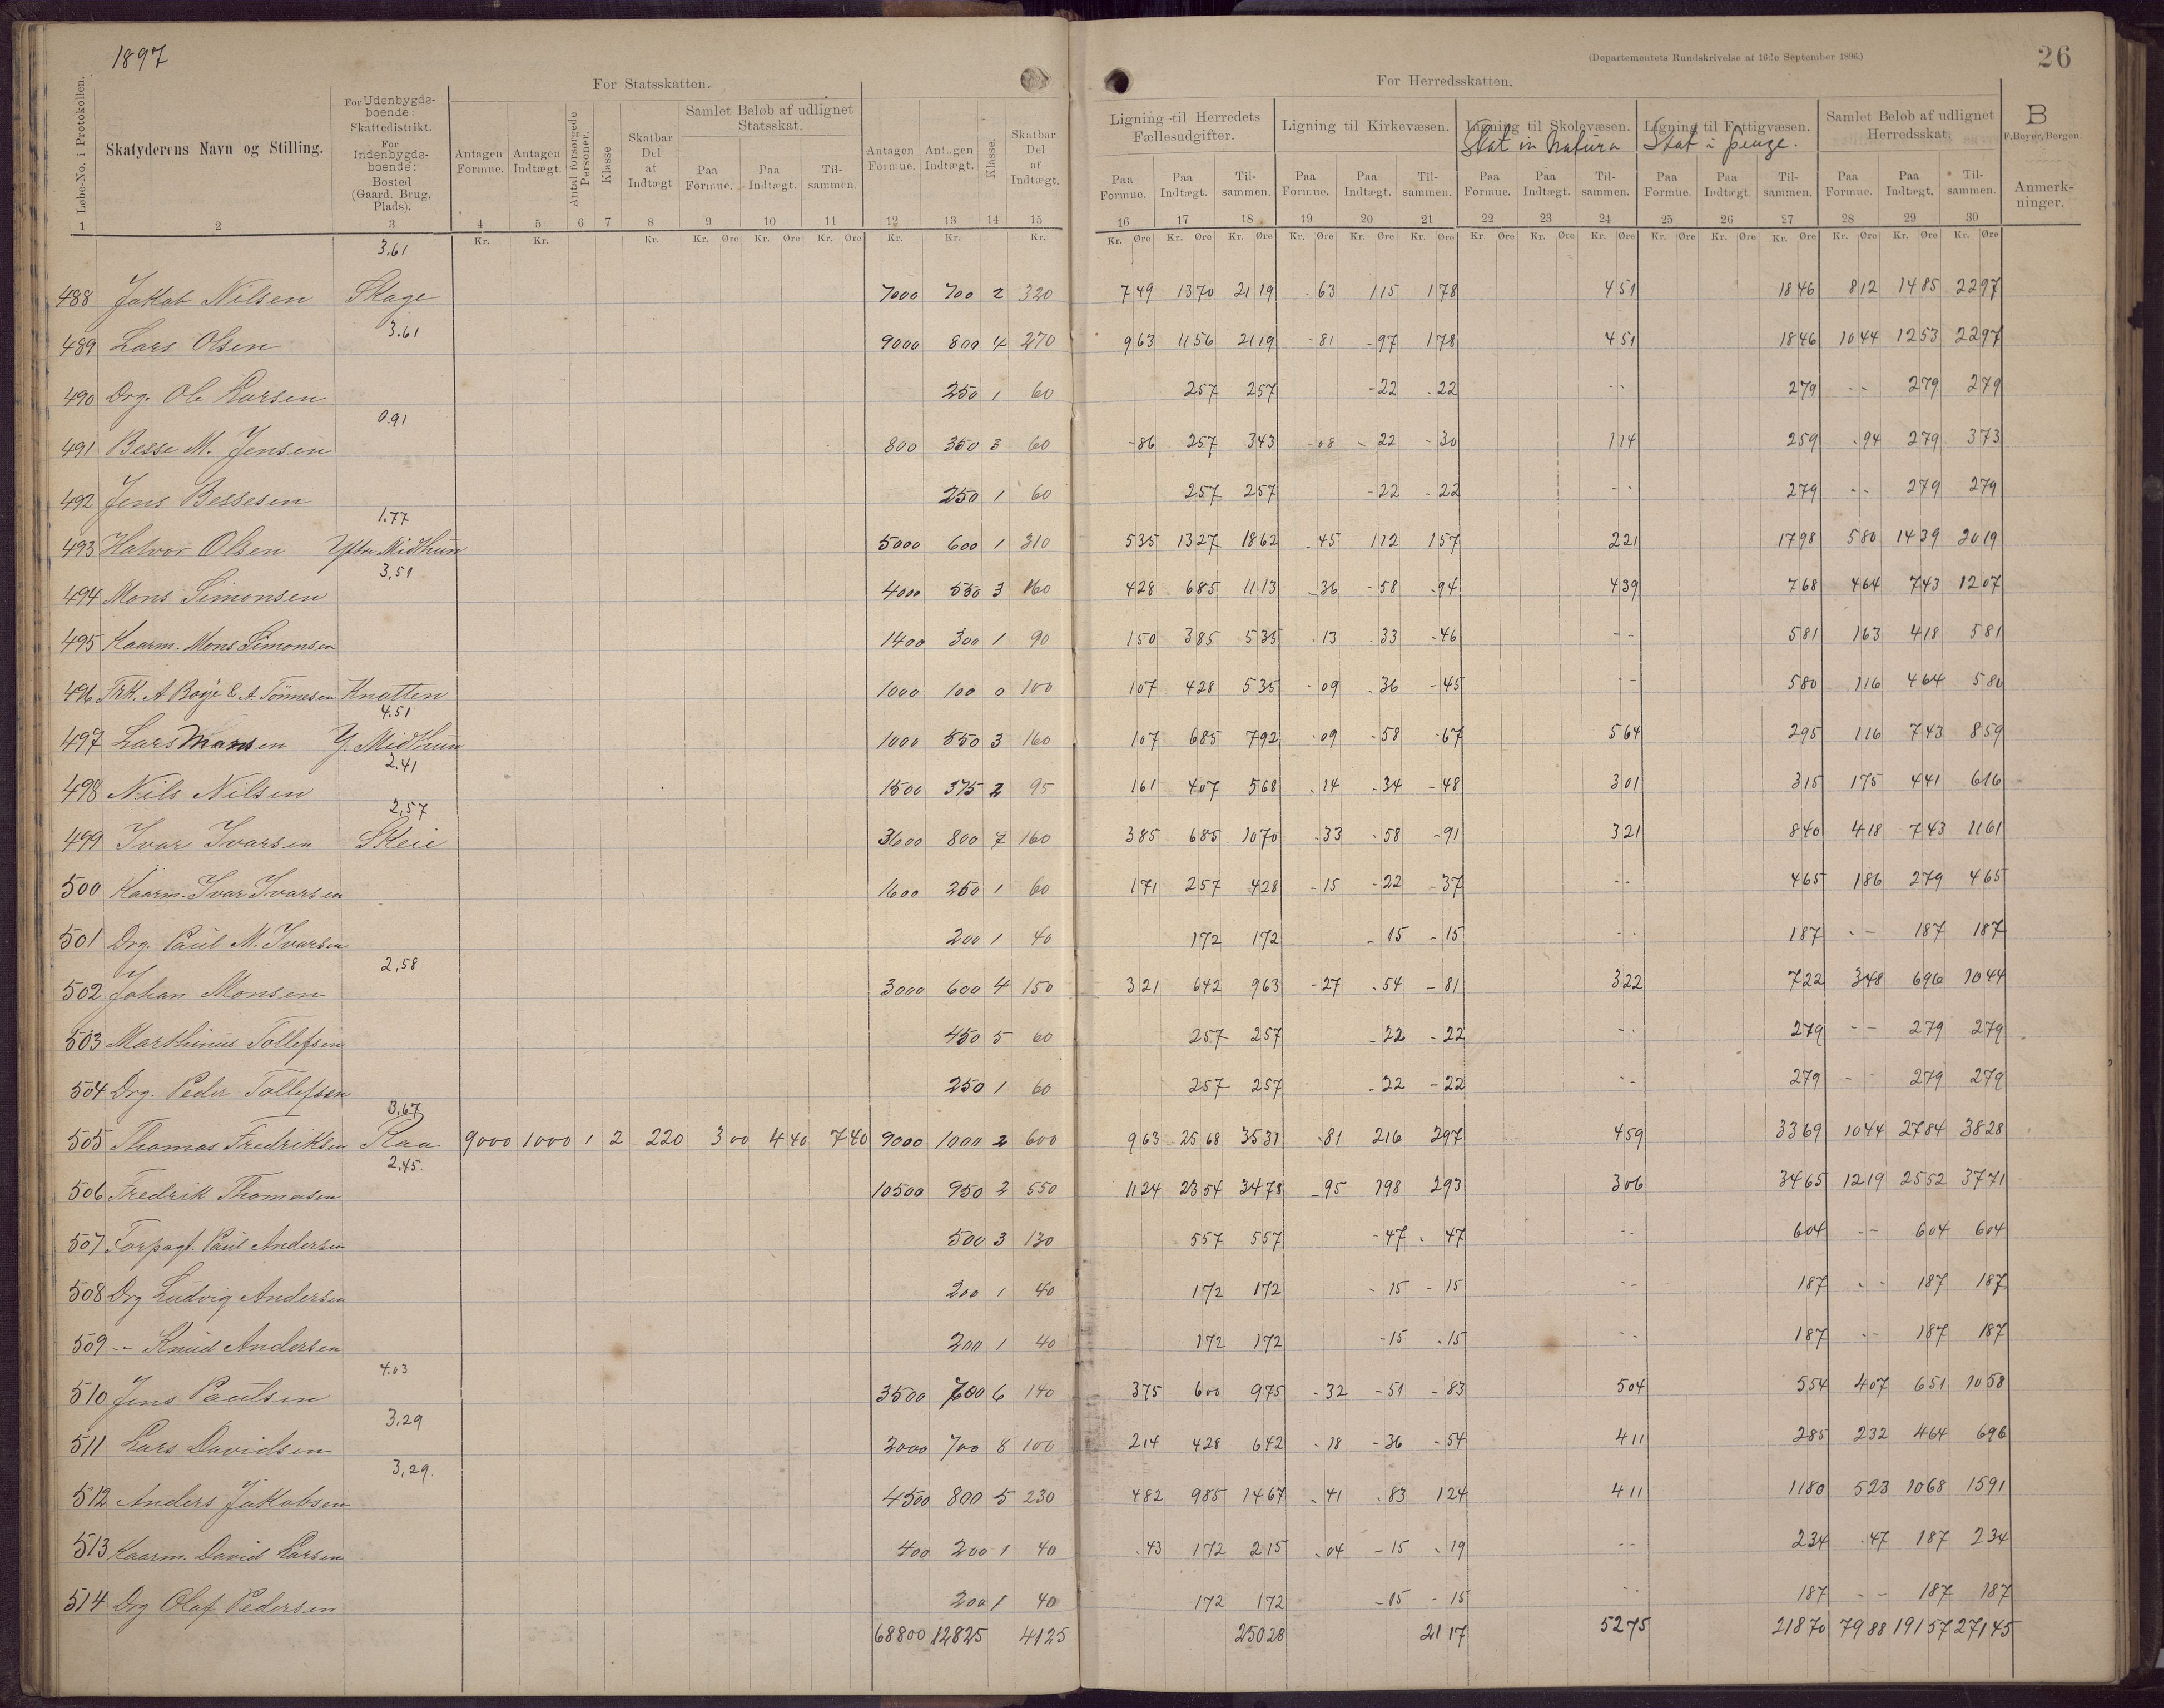 1897
(Departementets Rundskrivelse af 16de September 1896.)
26
For Statsskatten.
For Herredsskatten.
B
F. Beyer, Bergen.
Løbe-No. i Protokollen.
Skatyderens Navn og Stilling.
For Udenbygds-boende: Skattedistrikt. For Indenbygds-boende: Bosted (Gaard, Brug, Plads).
Antagen Formue.
Antagen Indtægt.
Antal forsørgede Personer.
Klasse
Skatbar Del af Indtægt
Samlet Beløb af udlignet Statsskat.
Paa Formue. Paa Indtægt. Til-sammen.
Antagen Formue.
Antagen Indtægt.
Klasse.
Skatbar Del af Indtægt.
Ligning til Herredets Fællesudgifter.
Ligning til Kirkevæsen.
Ligning til Skolevæsen.
Skat in Natura
Ligning til Fattigvæsen.
Skat i penge.
Samlet Beløb af udlignet Herredsskat.
Paa Formue. Paa Indtægt. Til-sammen. Paa Formue. Paa Indtægt. Til-sammen. Paa Formue. Paa Indtægt. Til-sammen. Paa Formue. Paa Indtægt. Til-sammen. Paa Formue. Paa Indtægt. Til-sammen.
Anmerk-ninger.
1 2 3 4 5 6 7 8 9 10 11 12 13 14 15 16 17 18 19 20 21 22 23 24 25 26 27 28 29 30
Kr. Kr. Kr. Kr. Øre Kr. Øre Kr. Øre Kr. Kr. Kr. Kr. Øre Kr. Øre Kr. Øre Kr. Øre Kr. Øre Kr. Øre Kr. Øre Kr. Øre Kr. Øre Kr. Øre Kr. Øre Kr. Øre Kr. Øre Kr. Øre Kr. Øre
3.61
488 Jakob Nilsen Skage 7000 700 2 320 749 1370 2119 63 115 178 451 1846 812 1485 2297
3.61
489 Lars Olsen 9000 800 4 270 963 1156 2119 -81 -97 178 451 1846 1044 1253 2297
490 Drg. Ole Larsen 250 1 60 257 257 -22 -22 -- 279 -- 279 279
0.91
491 Besse M. Jensen 800 350 3 60 -86 257 343 -08 -22 -30 114 259 -94 279 373
492 Jens Bessesen 250 1 60 257 257 -22 -22 -- 279 -- 279 279
1.77
493 Halvor Olsen Yttre Midthun 5000 600 1 310 535 1327 1862 -45 112 157 221 1798 580 1439 2019
3,51
494 Mons Simonsen 4000 550 3 160 428 685 1113 -36 -58 -94 439 768 464 743 1207
495 Kaarm. Mons Simonsen 1400 300 1 90 150 385 535 -13 -33 -46 -- 581 163 418 581
496 Frk. A Boye & A Tönnesen Knatten 1000 100 0 100 107 428 535 -09 -36 -45 -- 580 116 464 580
4.51
497 Lars Monsen Y. Midthun 1000 550 3 160 107 685 792 -09 -58 -67 564 295 116 743 859
2.41
498 Nils Nilsen 1500 375 2 95 161 407 568 -14 -34 -48 301 315 175 441 616
2,57
499 Ivar Ivarsen Skeie 3600 800 7 160 385 685 1070 -33 -58 -91 321 840 418 743 1161
500 Kaarm. Ivar Ivarsen 1600 250 1 60 171 257 428 -15 -22 -37 -- 465 186 279 465
501 Drg. Paul M. Ivarsen 200 1 40 172 172 -15 -15 -- 187 -- 187 187
2,58
502 Johan Monsen 3000 600 4 150 321 642 963 -27 -54 -81 322 722 348 696 1044
503 Marthinus Tollefsen 450 5 60 257 257 -22 -22 -- 279 -- 279 279
504 Drg. Peder Tollefsen 250 1 60 257 257 -22 -22 -- 279 -- 279 279
3.67
505 Thomas Fredriksen Raa 9000 1000 1 2 220 300 440 740 9000 1000 2 600 963 2568 3531 -81 216 297 459 3369 1044 2784 3828
2.45.
506 Fredrik Thomasen 10500 950 2 550 1124 2354 3478 -95 198 293 306 3465 1219 2552 3771
507 Forpagt. Paul Andersen 500 3 130 557 557 -47 -47 -- 604 -- 604 604
508 Drg Ludvig Andersen 200 1 40 172 172 -15 -15 -- 187 -- 187 187
509 -- Knud Andersen 200 1 40 172 172 -15 -15 -- 187 -- 187 187
4.03
510 Jens Paulsen 3500 700 6 140 375 600 975 -32 -51 -83 504 554 407 651 1058
3.29
511 Lars Davidsen 2000 700 8 100 214 428 642 -18 -36 -54 411 285 232 464 696
3,29.
512 Anders Jakobsen 4500 800 5 230 482 985 1467 -41 -83 124 411 1180 523 1068 1591
513 Kaarm. David Larsen 400 200 1 40 -43 172 215 -04 -15 -19 -- 234 -47 187 234
514 Drg Olaf Pedersen 200 1 40 172 172 -15 -15 -- 187 -- 187 187
68800 12825 4125 25028 2117 5275 21870 7988 19157 27145